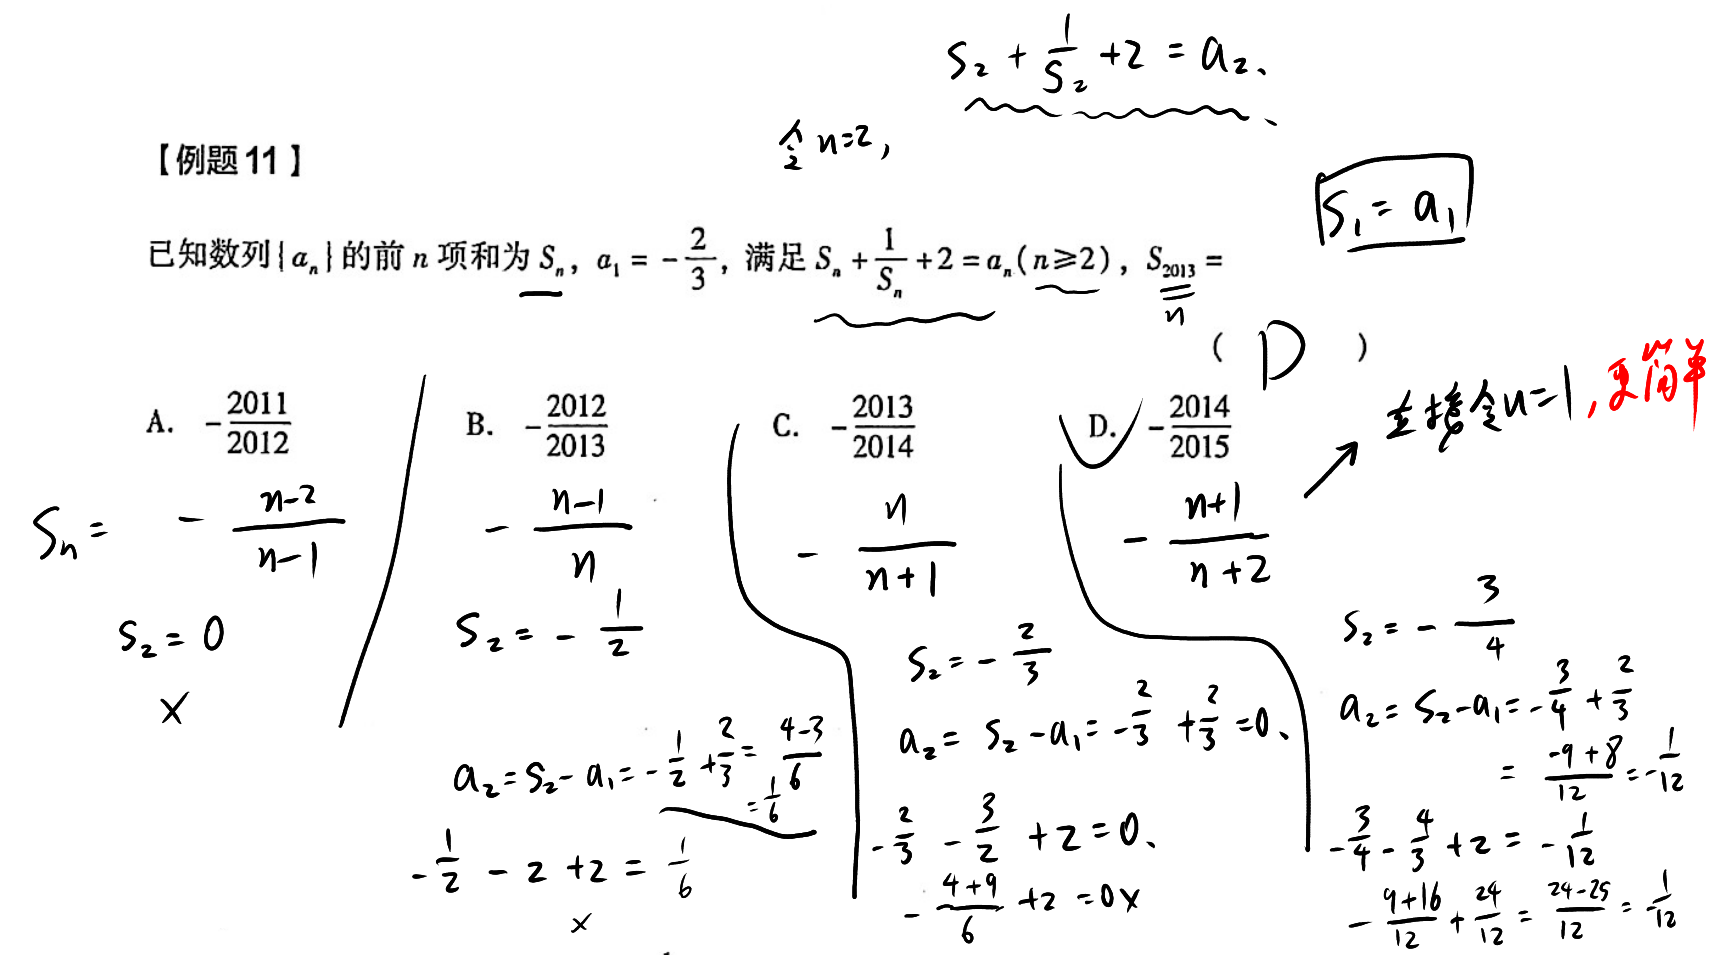 S₂ + 1/S₂ + 2 = a₂、
令n=2,
【例题11】
S₁ = a₁
已知数列{aₙ}的前 n 项和为 Sₙ, a₁ = -2/3, 满足 Sₙ + 1/Sₙ + 2 = aₙ(n≥2), S₂₀₁₃ =
n
( D )
直接令n=1,更简单
A. -2011/2012 B. -2012/2013 C. -2013/2014 D. -2014/2015
Sₙ = -(n-2)/(n-1) -(n-1)/n -n/(n+1) -(n+1)/(n+2)
S₂ = 0
×
S₂ = -1/2
a₂ = S₂ - a₁ = -1/2 + 2/3 = (4-3)/6
= 1/6
-1/2 - 2 + 2 = 1/6
×
S₂ = -2/3
a₂ = S₂ - a₁ = -2/3 + 2/3 = 0、
-2/3 - 3/2 + 2 = 0、
-(4+9)/6 + 2 = 0 ×
S₂ = -3/4
a₂ = S₂ - a₁ = -3/4 + 2/3
= (-9+8)/12 = -1/12
-3/4 - 4/3 + 2 = -1/12
-(9+16)/12 + 24/12 = (24-25)/12 = -1/12